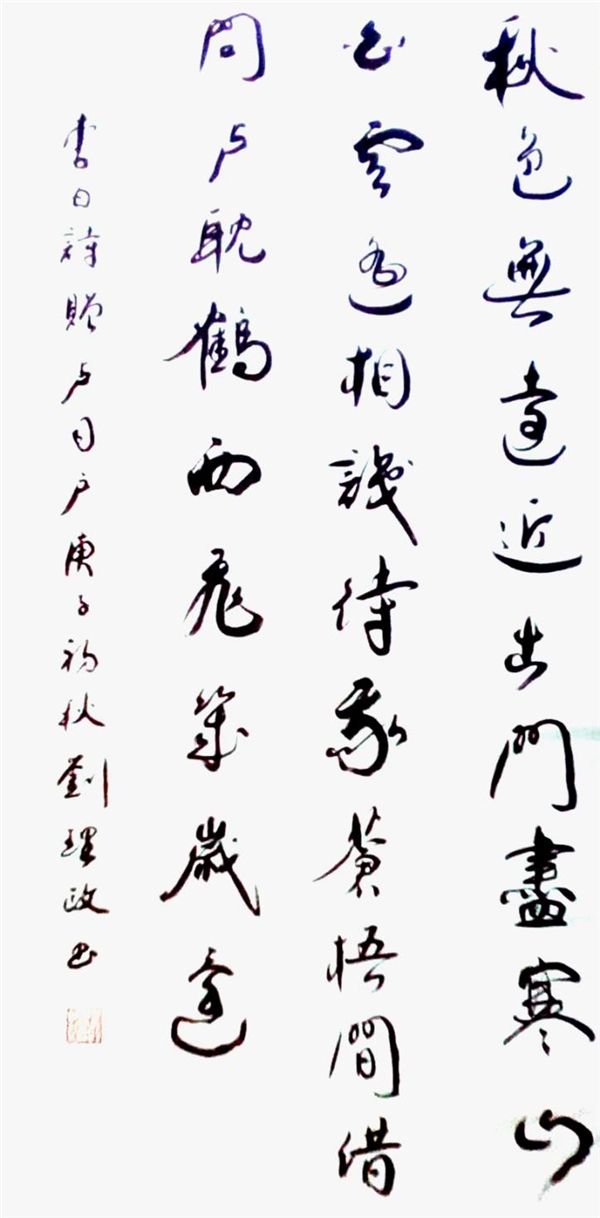 秋色無遠近出門盡寒山
白雲遥相識待我蒼梧間借
問卢耽鶴西飛幾歲還
李白詩贈卢司户庚子初秋劉理政书